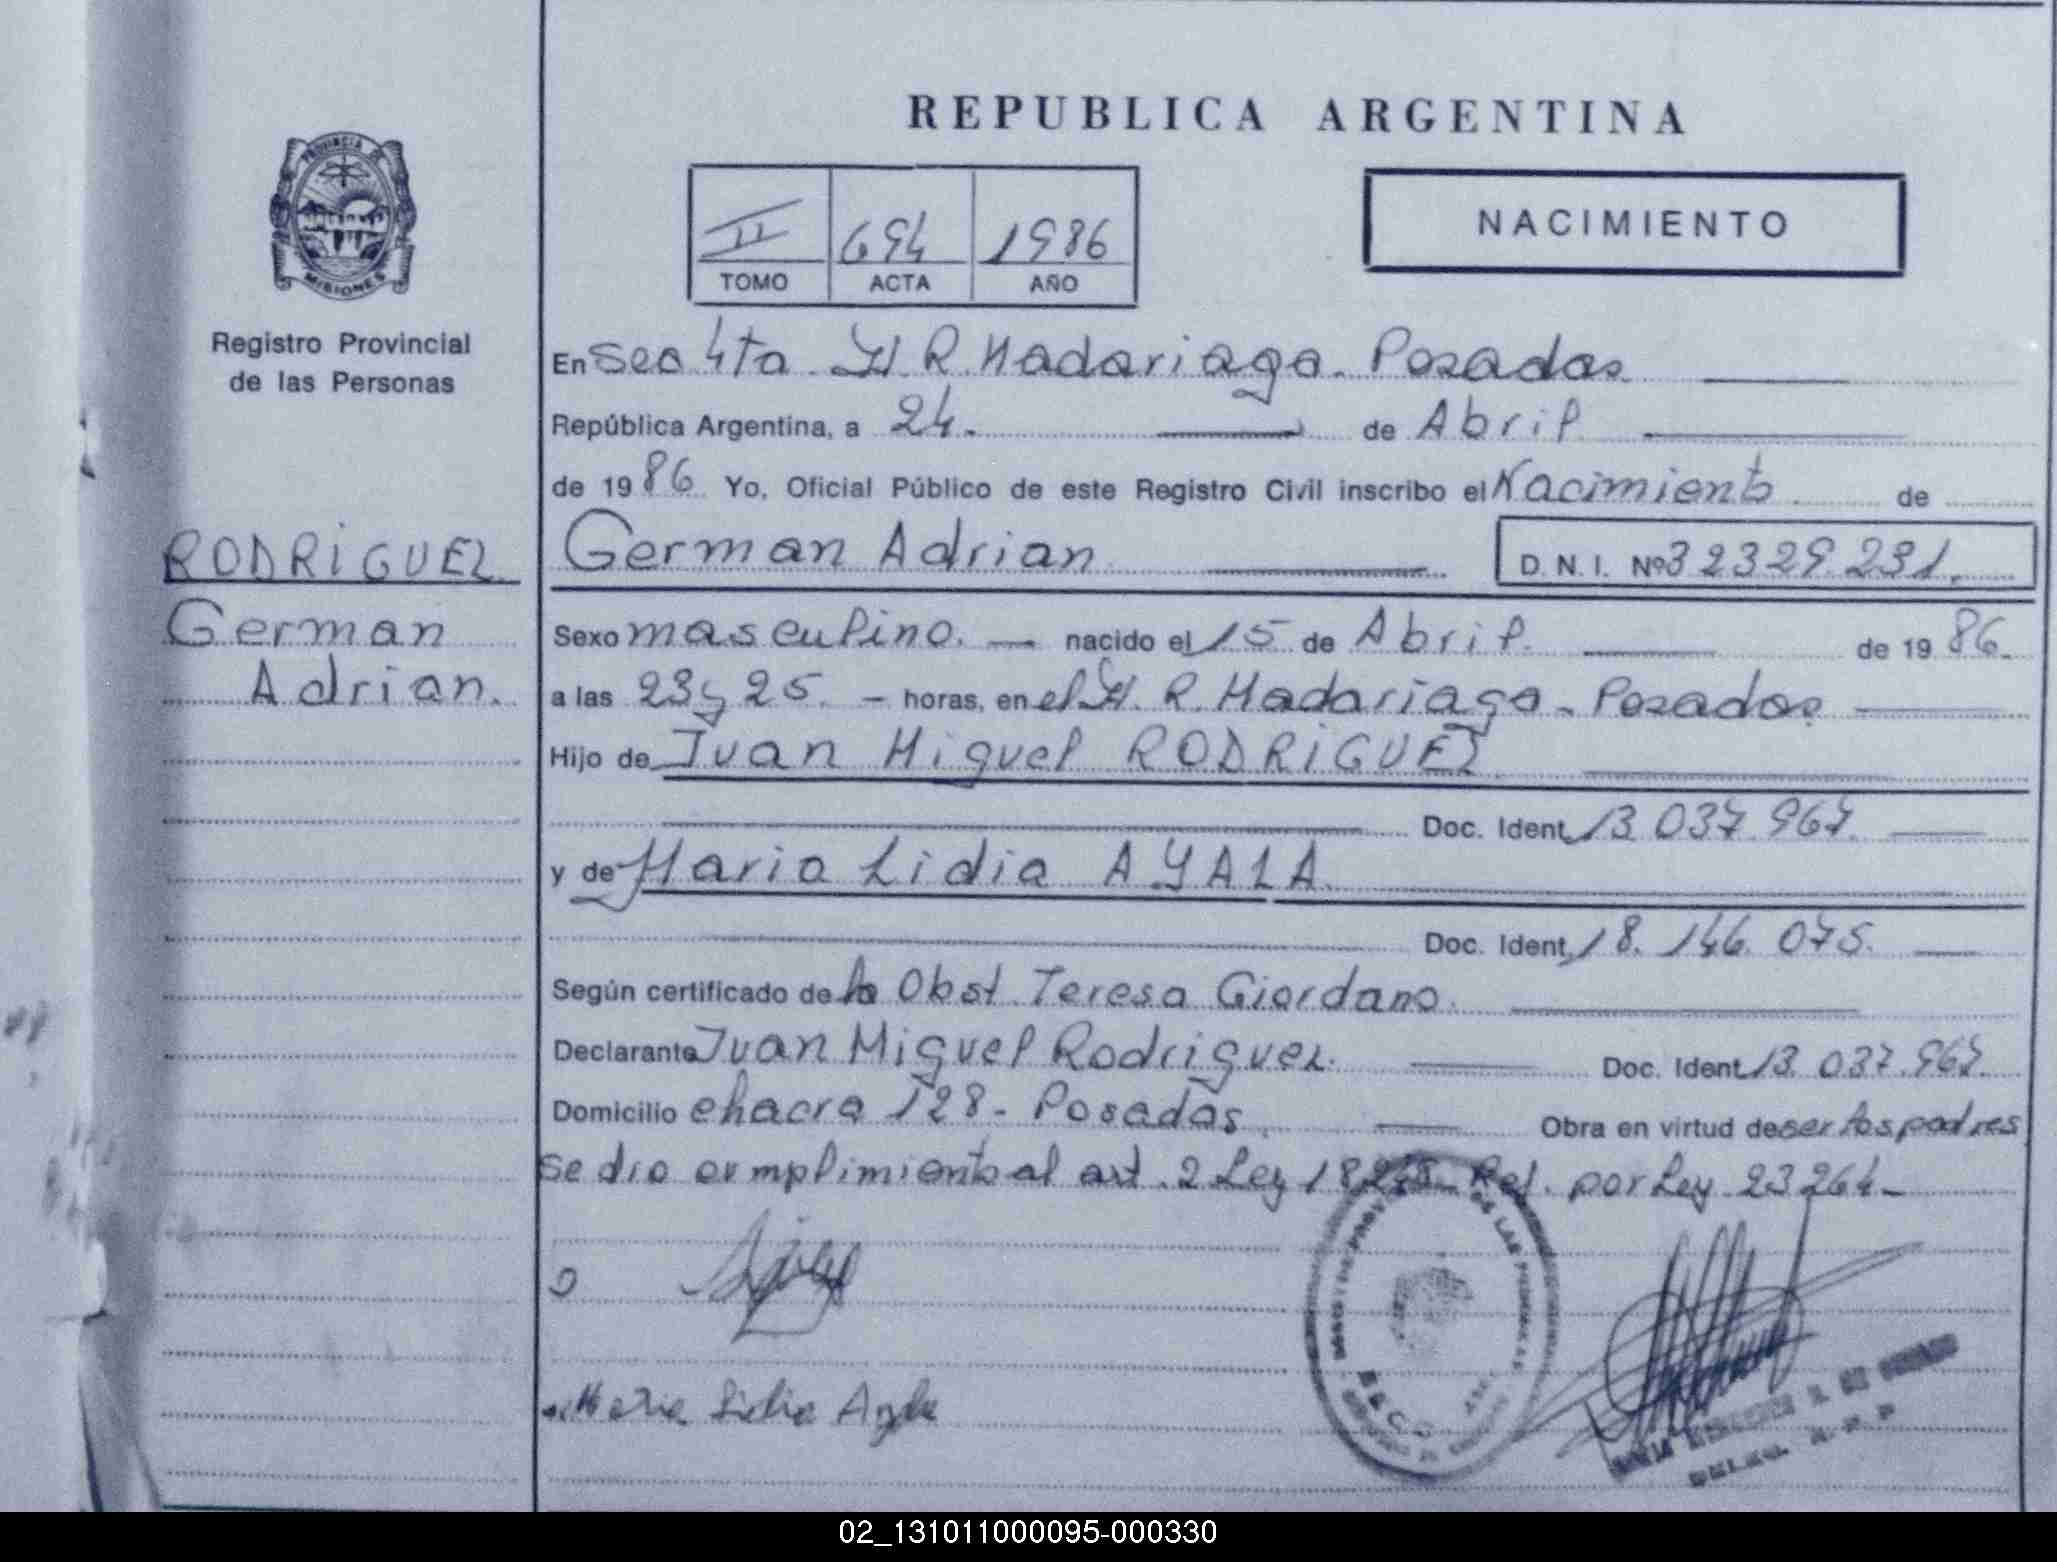 PROVINCIA DE
MISIONES
Registro Provincial
de las Personas
RODRIGUEZ
German
Adrian.
REPUBLICA ARGENTINA
II 694 1986
TOMO ACTA AÑO
NACIMIENTO
En Sec 4ta. H. R. Madariaga - Posadas
República Argentina, a 24. de Abril
de 1986 Yo, Oficial Público de este Registro Civil inscribo el Nacimiento de
German Adrian D. N. I. Nº 32329.231.
Sexo masculino. — nacido el 15 de Abril. de 1986.
a las 23 y 25. — horas, en el H. R. Madariaga - Posadas
Hijo de Juan Miguel RODRIGUEZ
Doc. Ident. 13.037.967
y de Maria Lidia AYALA.
Doc. Ident. 18.146.075.
Según certificado de la Obst. Teresa Giordano.
Declarante Juan Miguel Rodriguez. Doc. Ident. 13.037.967.
Domicilio chacra 128 - Posadas. Obra en virtud de ser los padres
Se dio cumplimiento al art. 2 Ley 18248 - Ref. por Ley 23264 -
Maria Lidia Ayala
02_131011000095-000330